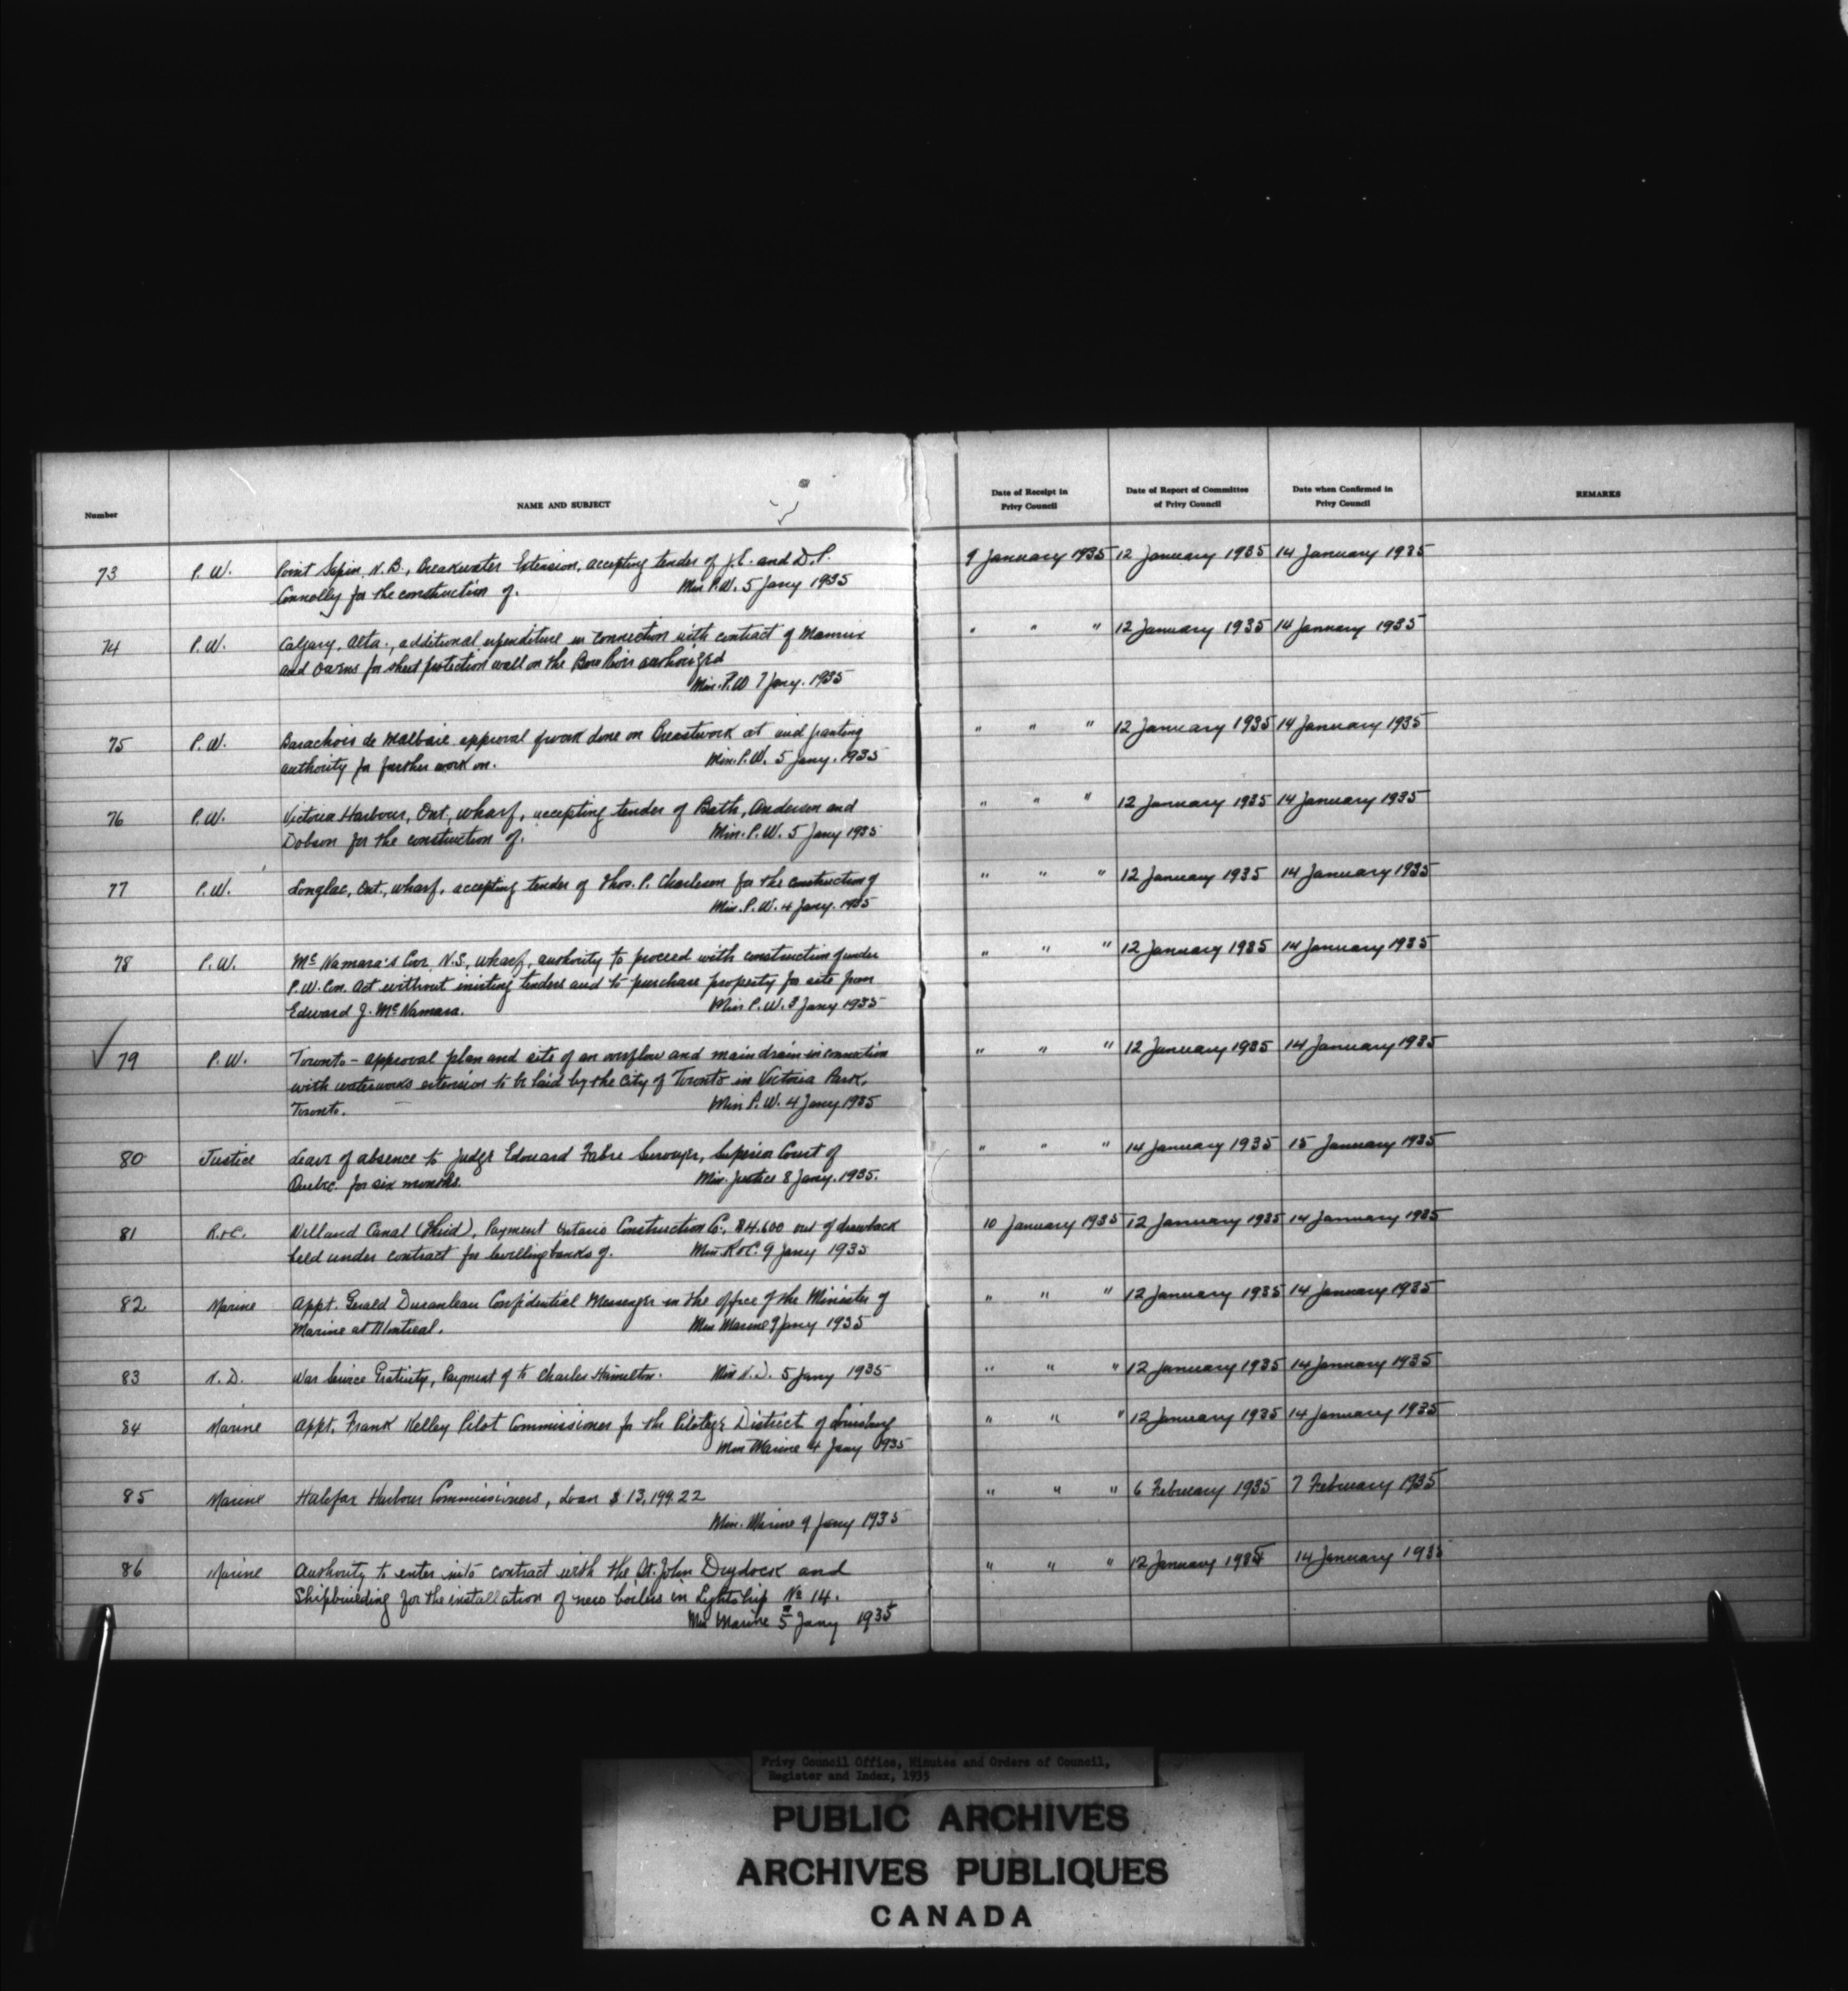 Number
NAME AND SUBJECT
Date of Receipt in
Privy Council
Date of Report of Committee
of Privy Council
Date when Confirmed in
Privy Council
REMARKS
73 P. W. Point Sapin, N.B., Breakwater Extension, accepting tender of J.E. and D.P. 9 January 1935 12 January 1935 14 January 1935
Connolly for the construction of. Min P.W. 5 Jany 1935
74 P. W. Calgary, Alta., additional expenditure in connection with contract of Mannix " " " 12 January 1935 14 January 1935
and for sheet protection wall on the Bow River authorized
Min. P.W 7 Jany. 1935
75 P. W. Barachois de Malbaie approval of work done on Breastwork at and granting " " " 12 January 1935 14 January 1935
authority for further work on. Min. P.W. 5 Jany. 1935
76 P.W. Victoria Harbour, Ont, wharf, accepting tender of Bath, Anderson and " " " 12 January 1935 14 January 1935
Dobson for the construction of. Min. P.W. 5 Jany 1935
77 P.W. Longlac, Ont., wharf, accepting tender of Thos. P. Charleson for the construction of " " " 12 January 1935 14 January 1935
Min. P.W. 4 Jany. 1935
78 P.W. McNamara's Cove N.S., wharf, authority to proceed with construction of under " " " 12 January 1935 14 January 1935
P.W. Con. Act without inviting tenders and to purchase property for site from
Edward J. McNamara. Min P.W. 3 Jany 1935
✓ 79 P.W. Toronto - approval plan and site of an overflow and main drain in connection " " " 12 January 1935 14 January 1935
with waterworks extension to be laid by the City of Toronto in Victoria Park,
Toronto. Min P.W. 4 Jany 1935
80 Justice Leave of absence to Judge Edouard Fabre Surveyer, Superior Court of " " " 14 January 1935 15 January 1935
Quebec for six months. Min. Justice 8 Jany. 1935.
81 R.&C. Welland Canal (Third), Payment Ontario Construction Co., $4,600 out of drawback 10 January 1935 12 January 1935 14 January 1935
held under contract for levelling banks of. Min. R&C. 9 Jany 1935
82 Marine Appt. Gerald Duranleau Confidential Messenger in the office of the Minister of " " " 12 January 1935 14 January 1935
Marine at Montreal. Min Marine 9 Jany 1935
83 N.D. War Service Gratuity, Payment of to Charles Hamilton. Min N.D. 5 Jany 1935 " " " 12 January 1935 14 January 1935
84 Marine Appt. Frank Kelley Pilot Commissioner for the Pilotage District of Louisburg " " " 12 January 1935 14 January 1935
Min Marine 4 Jany 1935
85 Marine Halifax Harbour Commissioners, Loan $13,199.22 " " " 6 February 1935 7 February 1935
Min. Marine 9 Jany 1935
86 Marine Authority to enter into contract with the St. John Drydock and " " " 12 January 1935 14 January 1935
Shipbuilding for the installation of new boilers in Lightship No 14.
Min Marine 5 Jany 1935
Privy Council Office, Minutes and Orders of Council,
Register and Index, 1935
PUBLIC ARCHIVES
ARCHIVES PUBLIQUES
CANADA